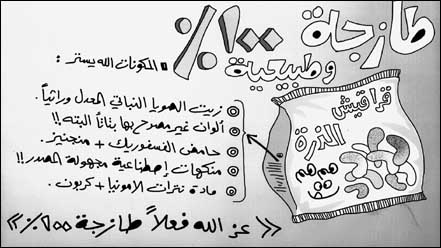 طازجة ١٠٠٪
وطبيعية
المكونات الله يستر :
زيت الصويا النباتي المعدل وراثياً.
ألوان غير مصرح بها بتاتاً البته!!
حامض الفسفوريك + منجنيز.
منكهات إصطناعية مجهولة المصدر!!
مادة نترات الامونيا + كربون.
قراقيش
الذرة
هم هم
>> عز الله فعلاً طازجة ١٠٠٪ <<